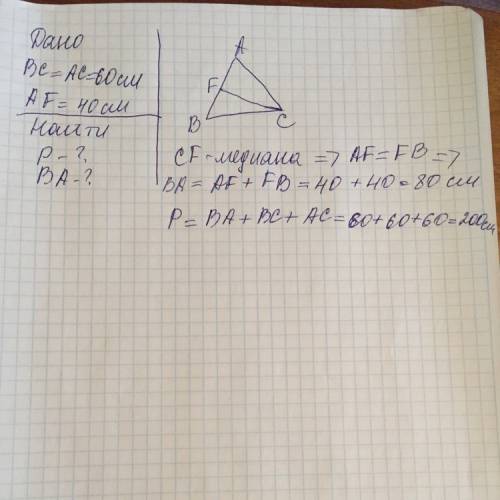 Дано
BC = AC = 60 см
AF = 40 см
Найти
P - ?
BA - ?
A
F
B
C
CF - медиана => AF = FB =>
BA = AF + FB = 40 + 40 = 80 см
P = BA + BC + AC = 80 + 60 + 60 = 200 см